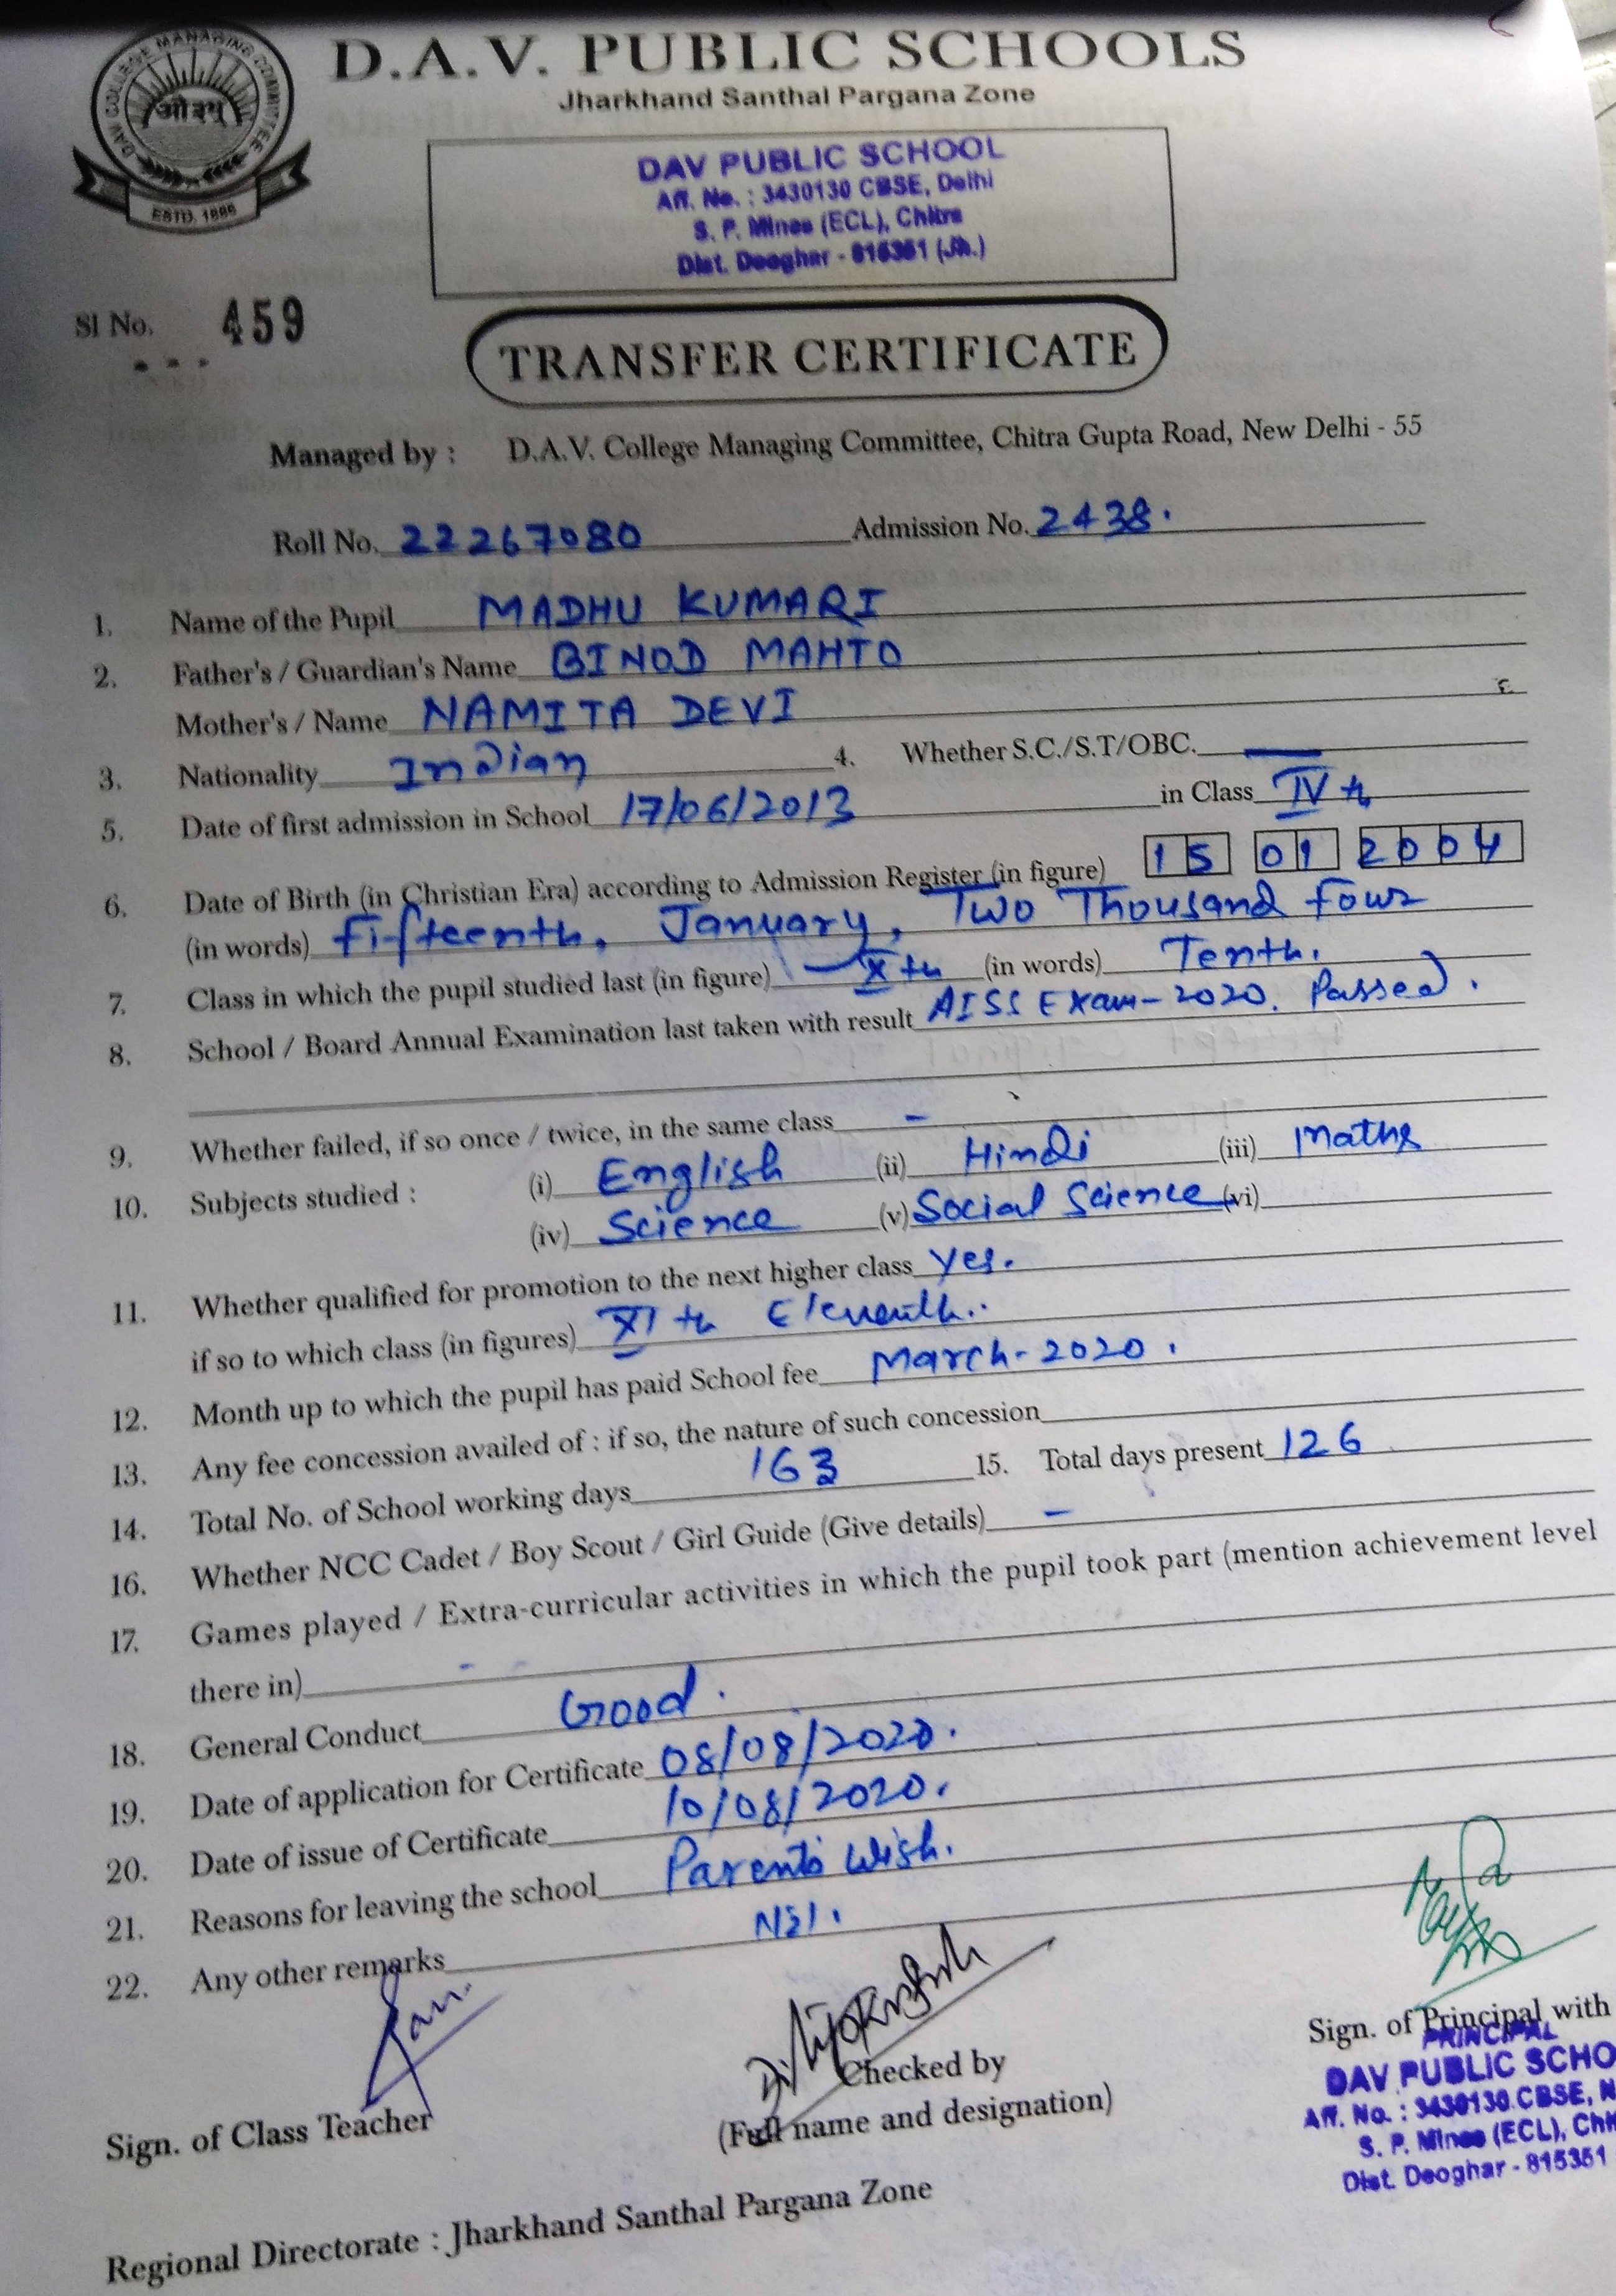 DAV COLLEGE MANAGING COMMITTEE
ओ३म्
ESTD. 1886
D.A.V. PUBLIC SCHOOLS
Jharkhand Santhal Pargana Zone
DAV PUBLIC SCHOOL
Aff. No. : 3430130 CBSE, Delhi
S. P. Mines (ECL), Chitra
Dist. Deoghar - 815351 (Jh.)
Sl No. 459
TRANSFER CERTIFICATE
Managed by : D.A.V. College Managing Committee, Chitra Gupta Road, New Delhi - 55
Roll No. 22267080 Admission No. 2438.
1. Name of the Pupil MADHU KUMARI
2. Father's / Guardian's Name BINOD MAHTO
Mother's / Name NAMITA DEVI
3. Nationality Indian 4. Whether S.C./S.T/OBC. —
5. Date of first admission in School 17/06/2013 in Class IVth
6. Date of Birth (in Christian Era) according to Admission Register (in figure) 15 01 2004
(in words) Fifteenth, January, Two Thousand Four
7. Class in which the pupil studied last (in figure) Xth (in words) Tenth.
8. School / Board Annual Examination last taken with result AISS Exam-2020. Passed.
9. Whether failed, if so once / twice, in the same class -
10. Subjects studied : (i) English (ii) Hindi (iii) Maths
(iv) Science (v) Social Science (vi)
11. Whether qualified for promotion to the next higher class Yes.
if so to which class (in figures) XIth Eleventh..
12. Month up to which the pupil has paid School fee March-2020.
13. Any fee concession availed of : if so, the nature of such concession
14. Total No. of School working days 163 15. Total days present 126
16. Whether NCC Cadet / Boy Scout / Girl Guide (Give details) -
17. Games played / Extra-curricular activities in which the pupil took part (mention achievement level
there in) - -
18. General Conduct Good.
19. Date of application for Certificate 08/08/2020.
20. Date of issue of Certificate 10/08/2020.
21. Reasons for leaving the school Parents Wish.
22. Any other remarks Nil.
Sign. of Class Teacher
Checked by
(Full name and designation)
Sign. of Principal with
PRINCIPAL
DAV PUBLIC SCHO
Aff. No. : 3430130 CBSE, N
S. P. Mines (ECL), Chit
Dist. Deoghar - 815351
Regional Directorate : Jharkhand Santhal Pargana Zone